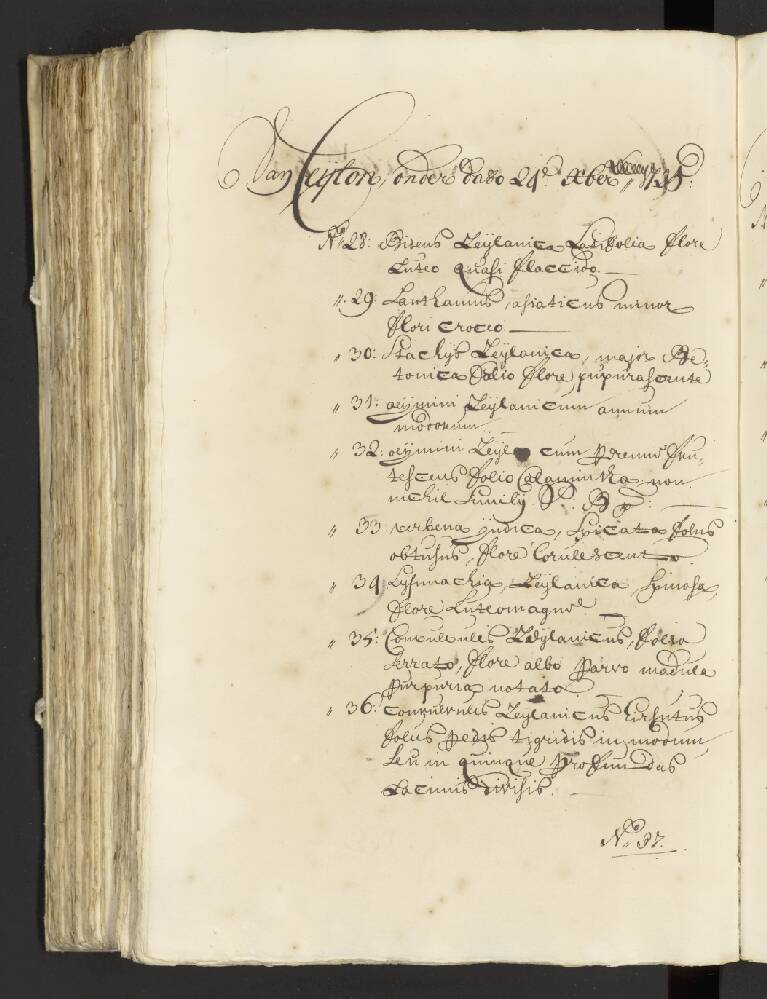 Van Ceijlon, onder dato 24:e xber 1735:
N:o 28: Bidens Zeijlanica Latifolia flore
Luteo quasi flaccido. —
„ 29: Lanthanus, asiaticus minor
flori croceo. —
„ 30: Stachijs Zeijlanica, major Be-
tonica folio flore, purpurascente
„ 31: ocijmini Zeijlanicum annum
inodorum
„ 32: ocijmini Zeijl cum perenne fru-
tescens folio Calamintha, non
nichil Similij
„ 33 verbena ijndica, Spicata foliis
obtusus, flore Corulescente
„ 34 Lijsimachia, Zeijlanica, Spinosa,
flore Luteo magno —
„ 35: Convulvulus Zeijlanicus, folio
Serrato, flore albo parvo macula
purpuria notato
„ 36: Convulvulus Zeijlanicus hirsutus
foliis pedis tigridis in modum
Seu in quinque profundas
Lacinus divisis. —
N:o 37.